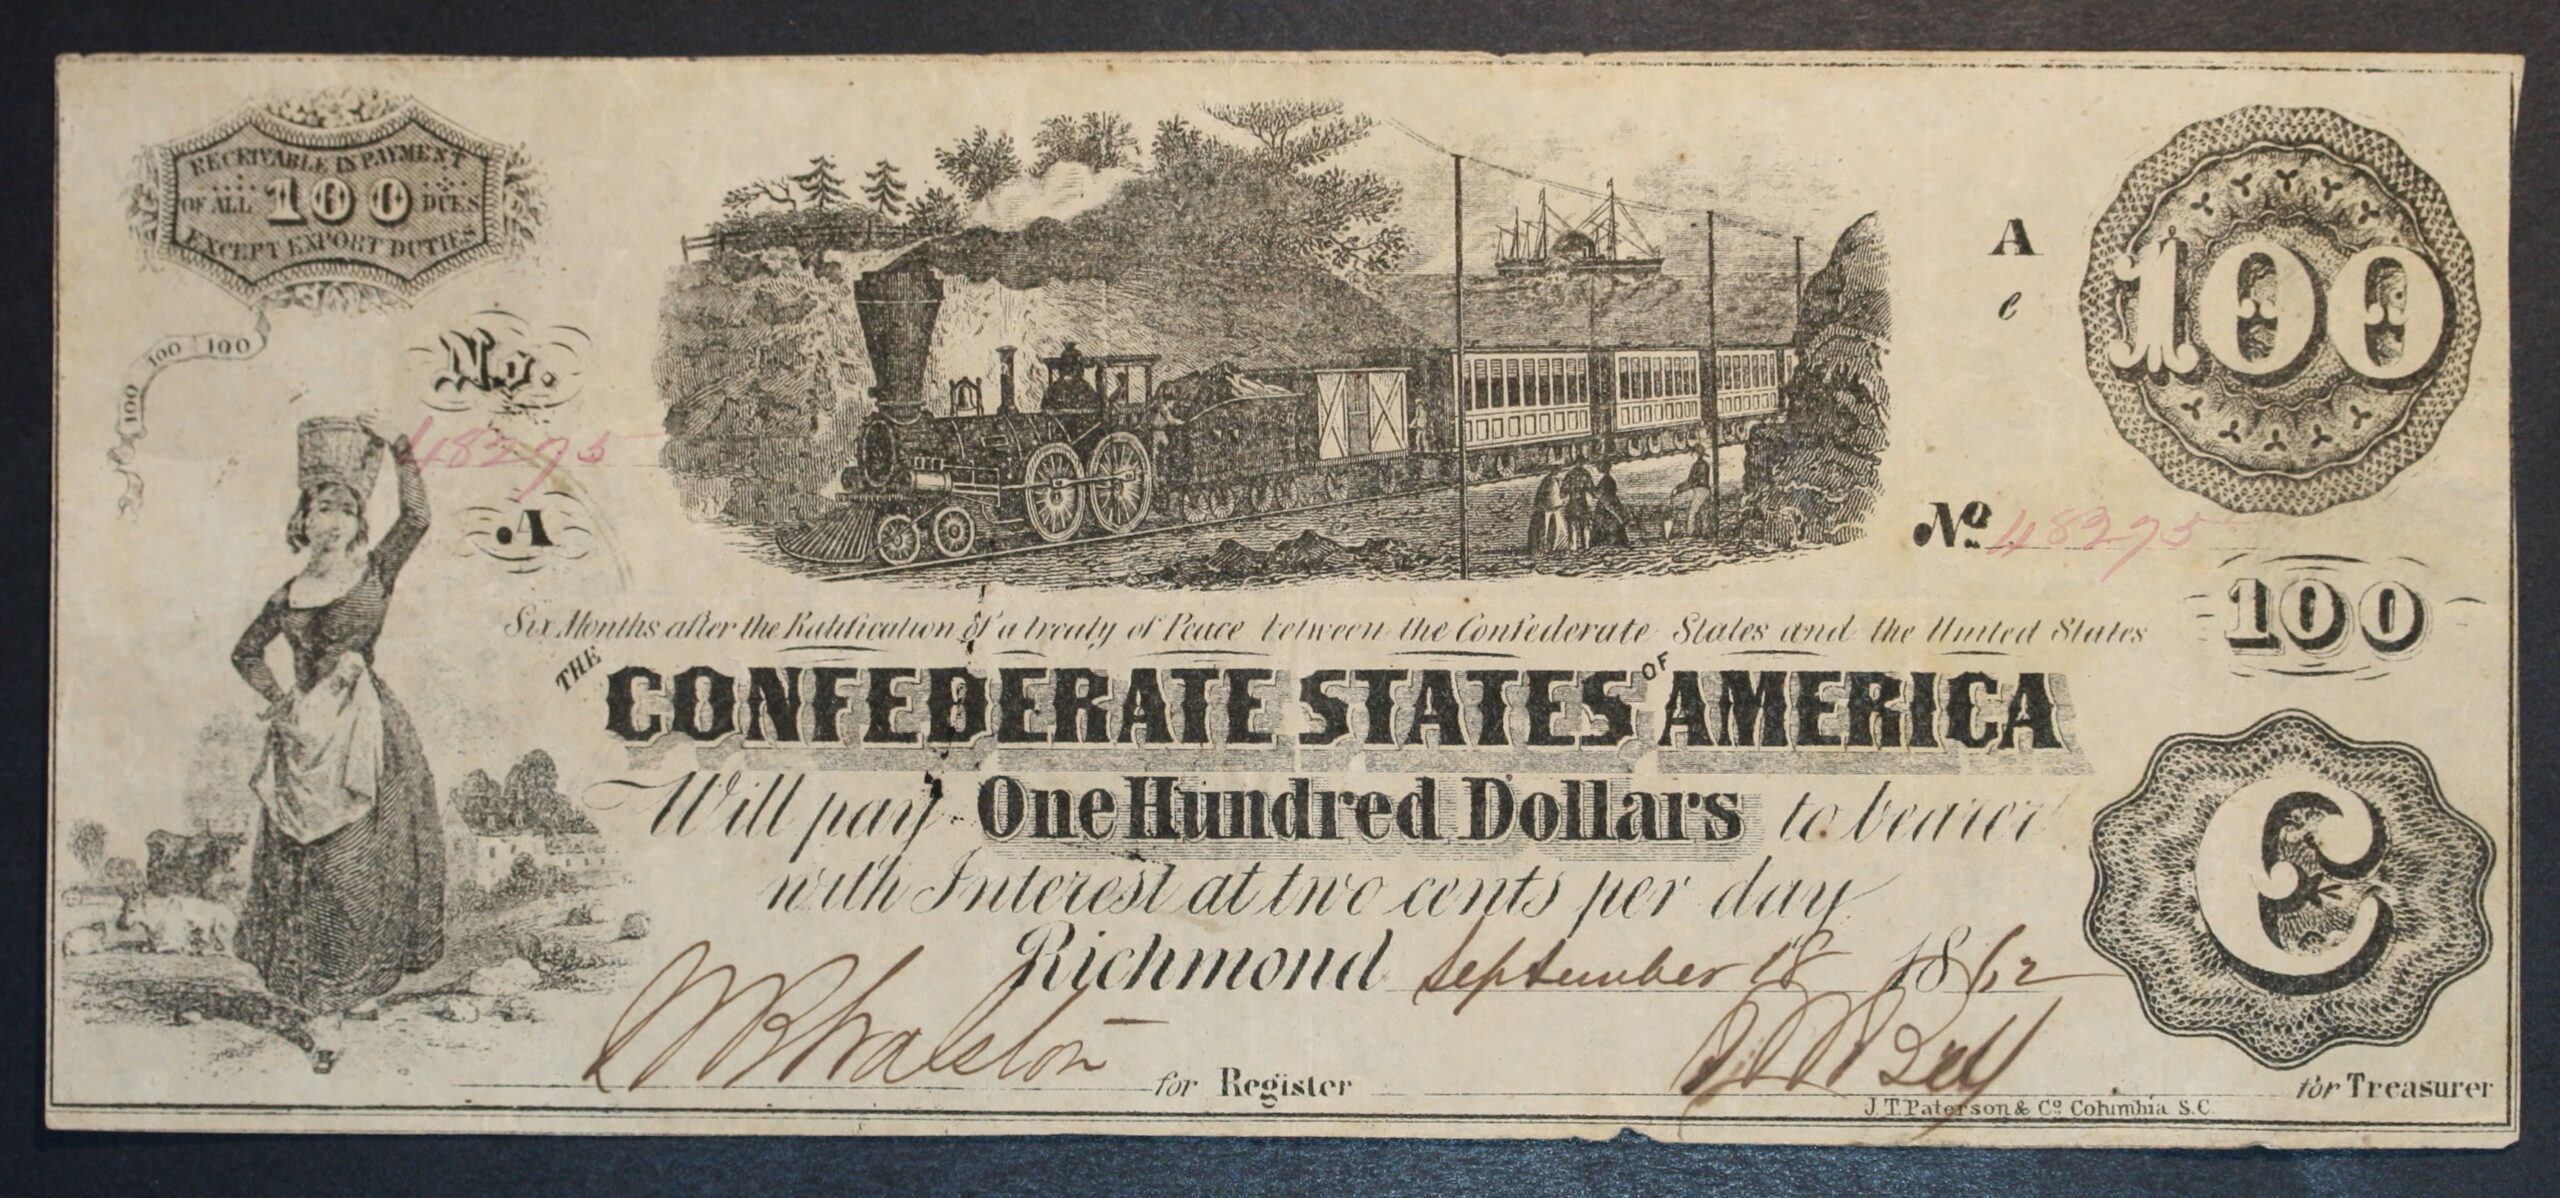 RECEIVABLE IN PAYMENT
OF ALL 100 DUES
EXCEPT EXPORT DUTIES
100 100 100
No.
48275
A
A
e
100
No 48275
100
Six Months after the Ratification of a treaty of Peace between the Confederate States and the United States
THE CONFEDERATE STATES OF AMERICA
Will pay One Hundred Dollars to bearer
with Interest at two cents per day
Richmond September 18 1862
C
for Register
for Treasurer
J.T. Paterson & Co Columbia S.C.